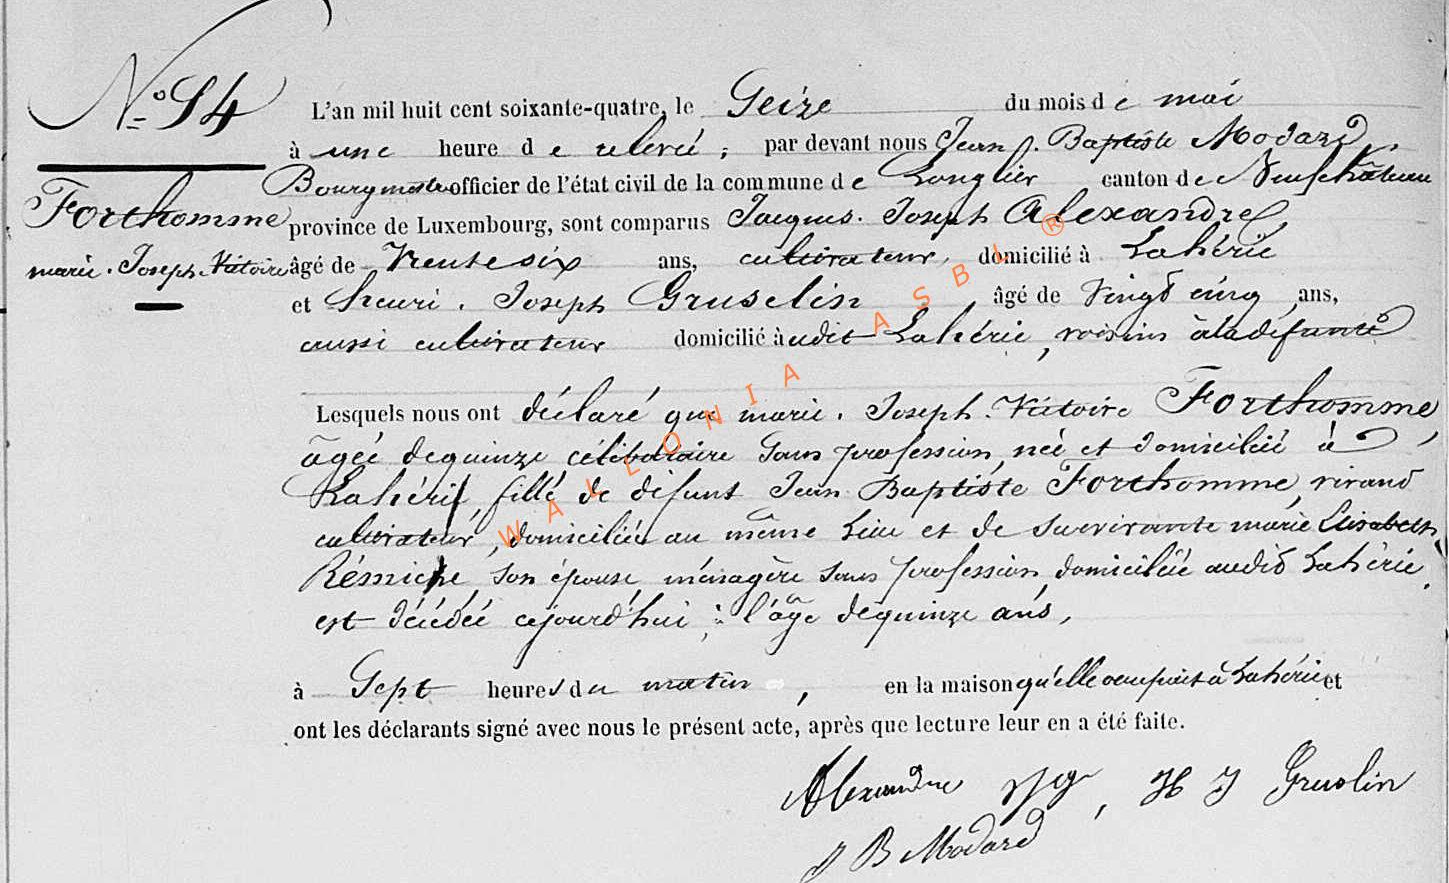 N° 14
Forthomme
marie. Joseph. Victoire
L'an mil huit cent soixante-quatre, le Seize du mois de mai
à une heure de relevée ; par devant nous Jean. Baptiste Modard,
Bourgmestre officier de l'état civil de la commune de Longlier canton de Neufchâteau
province de Luxembourg, sont comparus Jacques. Joseph Alexandre
âgé de Trente six ans, cultivateur, domicilié à Lahérie
et henri. Joseph Gruselin, âgé de Vingt cinq ans,
aussi cultivateur domicilié audit Lahérie, voisins à la défunte
Lesquels nous ont déclaré que marie. Joseph. Victoire Forthomme,
âgée de quinze célibataire Sans profession, née et domiciliée à
Lahérie, fille de défunt Jean Baptiste Forthomme, vivant
cultivateur, domiciliée au même Lieu et de survivante marie Elisabeth
Rémiche son épouse ménagère sans profession domiciliée audit Lahérie,
est décédée cejourd'hui ; à l'âge de quinze ans,
à Sept heures du matin, en la maison qu'elle occupait à Lahérie et
ont les déclarants signé avec nous le présent acte, après que lecture leur en a été faite.
Alexandre, H J Gruslin
J B Modard
WALLONIA ASBL ®